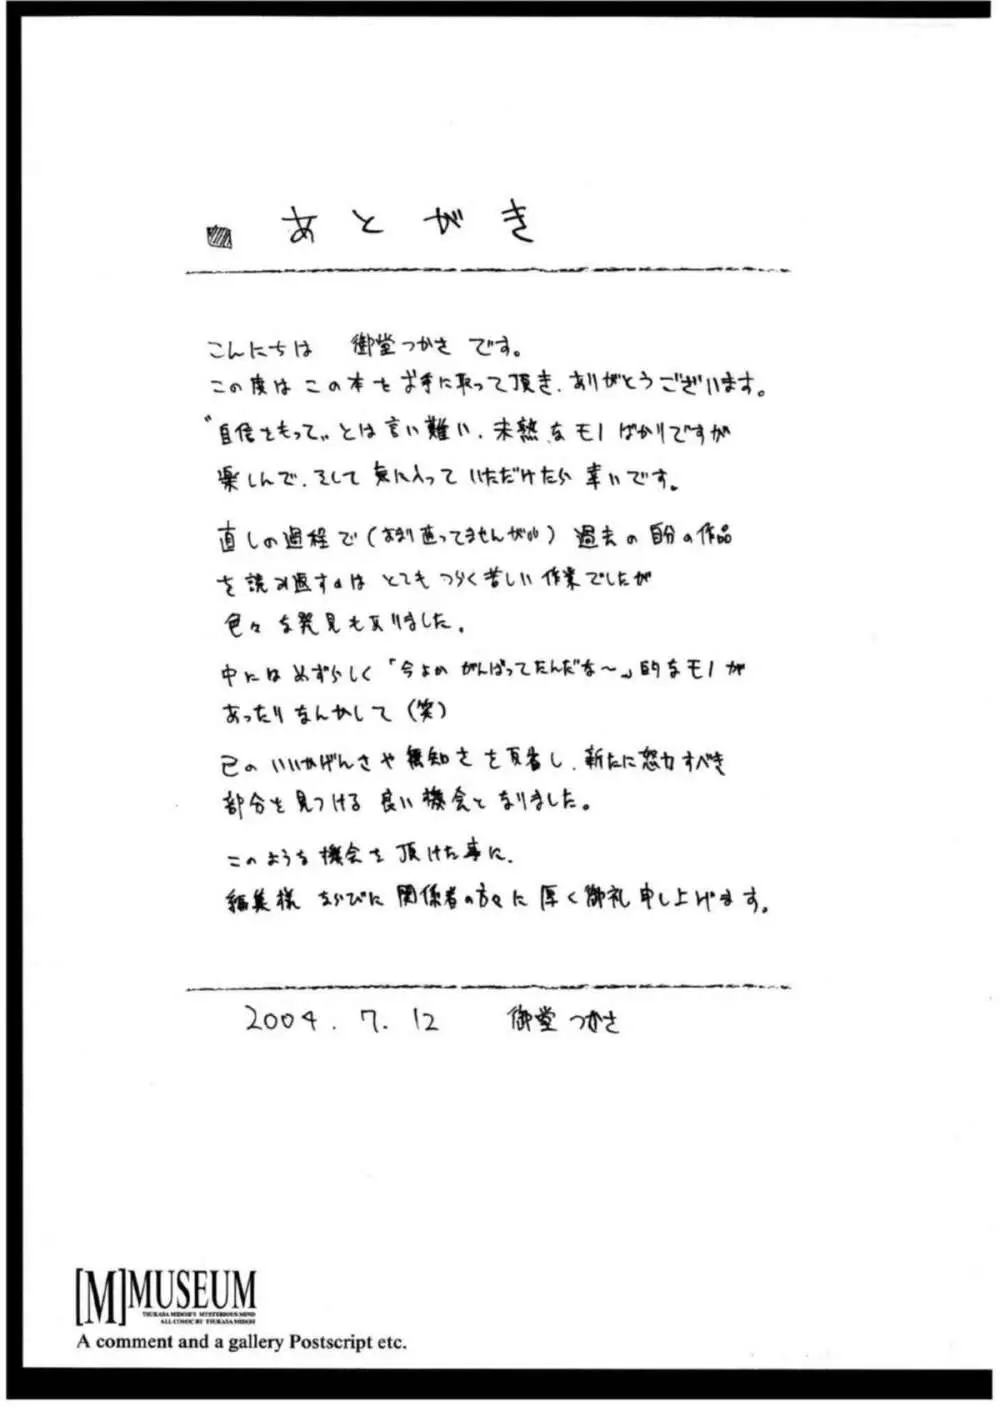 あとがき
こんにちは 御堂つかさ です。
この度は この本を お手に取って頂き、ありがとうございます。
"自信をもって" とは言い難い、未熟なモノばかりですが
楽しんで、そして 気に入って いただけたら 幸いです。
直しの過程で(あまり直ってませんが)過去の自分の作品
を読み返すのは とても つらく苦しい 作業でしたが
色々な発見もありました。
中には めずらしく「今よか がんばってたんだな〜」的なモノが
あったりなんかして(笑)
己の いいかげんさや 無知さ を反省し、新たに努力すべき
部分を 見つける 良い機会と なりました。
このような 機会を 頂けた事に、
編集様 ならびに 関係者の方々に 厚く御礼申し上げます。
2004.7.12 御堂つかさ
[M]MUSEUM
TSUKASA MIDOH'S MYSTERIOUS MIND
ALL COMIC BY TSUKASA MIDOH
A comment and a gallery Postscript etc.